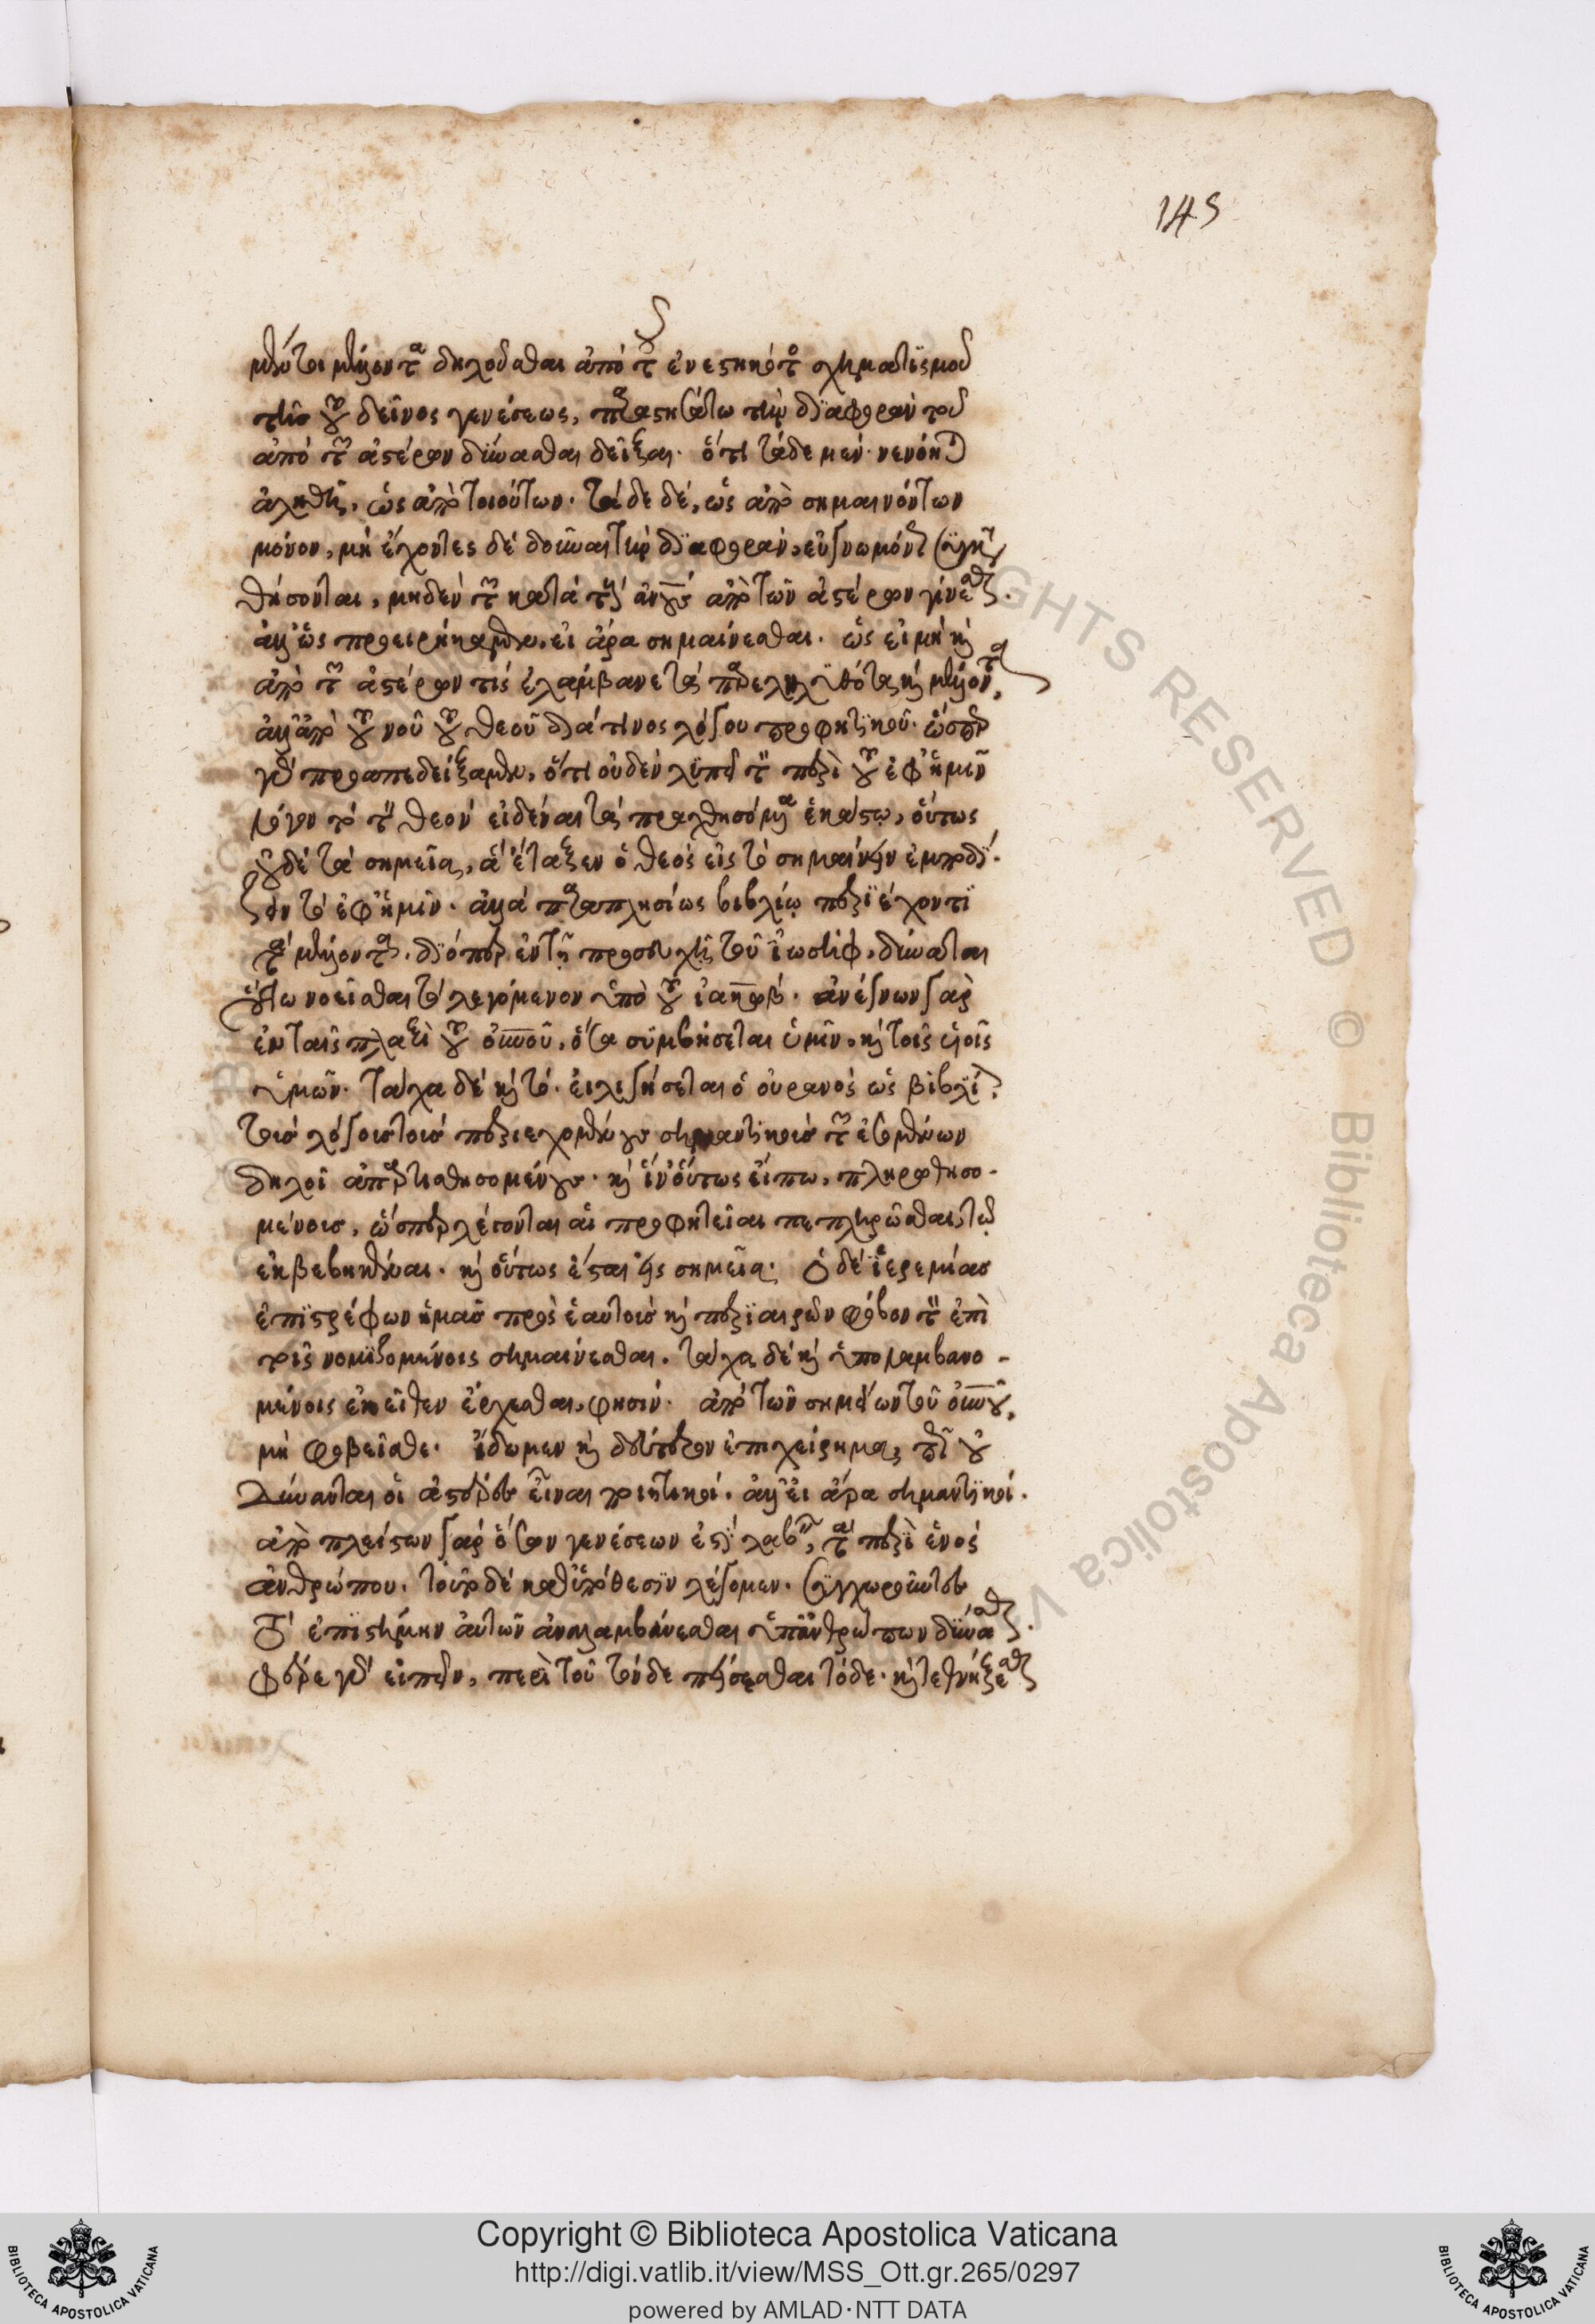 145
μέν τι μέλλοντα δηλοῦσθαι ἀπὸ τοῦ ἐνεστηκότος σχηματισμοῦ
τῆς τοῦ δεῖνος γενέσεως, παραστησάτω τὴν διαφορὰν τοῦ
ἀπὸ τῶν ἀστέρων δύνασθαι δεῖξαι. ὅτι τάδε μὲν νενόηται
ἀληθῆ, ὡς ἀπὸ ποιούντων. τάδε δέ, ὡς ἀπὸ σημαινόντων
μόνον, μὴ ἔχοντες δὲ δοῦναι τὴν διαφορὰν, εὐγνωμόνως συγκατα
θήσονται, μηδὲν τῶν κατὰ τοὺς ἀνους ἀπὸ τῶν ἀστέρων γίνεσθαι.
ἀλλ' ὡς προειρήκαμεν, εἰ ἄρα σημαίνεσθαι. ὡς εἰ μὴ καὶ
ἀπὸ τῶν ἀστέρων τις ἐλάμβανε τὰ παρεληλυθότα καὶ μέλλοντα,
ἀλλ' ἀπὸ τοῦ νοῦ τοῦ θεοῦ διά τινος λόγου προφητικοῦ. ὥσπερ
γὰρ προαπεδείξαμεν, ὅτι οὐδὲν λυπεῖ τὸν περὶ τοῦ ἐφ' ἡμῖν
λόγον τὸ τὸν θεὸν εἰδέναι τὰ πραχθησόμενα ἑκάστῳ, οὕτως
οὐδὲ τὰ σημεῖα, ἃ ἔταξεν ὁ θεὸς εἰς τὸ σημαίνειν ἐμποδί-
ζειν τὸ ἐφ' ἡμῖν. ἀλλὰ παραπλησίως βιβλίῳ περιέχοντι
τὰ μέλλοντα. διόπερ ἐν τῇ προσευχῇ τοῦ ἰωσὴφ, δύναται
οὕτω νοεῖσθαι τὸ λεγόμενον ὑπὸ τοῦ ἰακώβ. ἀνέγνων γὰρ
ἐν ταῖς πλαξὶ τοῦ οὐνοῦ, ὅσα συμβήσεται ὑμῖν, καὶ τοῖς υἱοῖς
ὑμῶν. τάχα δὲ καὶ τὸ. εἱλιγήσεται ὁ οὐρανὸς ὡς βιβλίον
τοὺς λόγους τοὺς περιεχομένους σημαντικοὺς τῶν ἐσομένων
δηλοῖ ἀπαρτισθησομένους. καὶ ἵν' οὕτως εἴπω, πληρωθησο-
μένους, ὥσπερ λέγονται αἱ προφητεῖαι πεπληρῶσθαι, τῷ
ἐκβεβηκέναι. καὶ οὕτως ἔσται εἰς σημεῖα. Ὁ δὲ ἱερεμίας
ἐπιστρέφων ἡμᾶς πρὸς ἑαυτοὺς καὶ περιαιρῶν φόβον τὸν ἐπὶ
τοῖς νομιζομένοις σημαίνεσθαι. τάχα δὲ καὶ ὑπολαμβανο-
μένοις ἐκεῖθεν ἔρχεσθαι, φησίν. ἀπὸ τῶν σημείων τοῦ οὐνοῦ,
μὴ φοβεῖσθε. ἴδωμεν καὶ δεύτερον ἐπιχείρημα, πῶς οὐ
Δύνανται οἱ ἀστέρες εἶναι ποιητικοί. ἀλλ' εἰ ἄρα σημαντικοί.
ἀπὸ πλείστων γὰρ ὅσων γενέσεων ἐστὶ λαβεῖν, τὰ περὶ ἑνὸς
ἀνθρώπου. τοῦτο δὲ καθ' ὑπόθεσιν λέγομεν. συγχωροῦντες
τὸ ἐπιστήμην αὐτῶν ἀναλαμβάνεσθαι ὑπ' ἀνθρώπων δύνασθαι.
φέρε γὰρ εἰπεῖν, περὶ τοῦ τόνδε πείσεσθαι τόδε. καὶ τεθνήξεσθαι
Copyright © Biblioteca Apostolica Vaticana
http://digi.vatlib.it/view/MSS_Ott.gr.265/0297
powered by AMLAD·NTT DATA